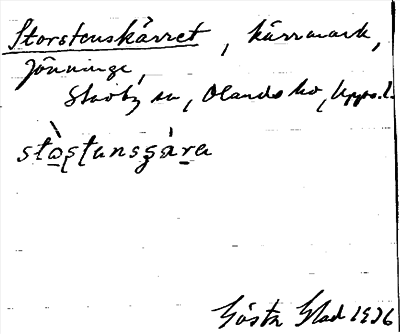 Storstenskärret, kärrmark,
Jönninge,
Stavby sn, Olands hd, Upps. l.
stɔ̀ʂʈansʂàra
Gösta Blad 1936